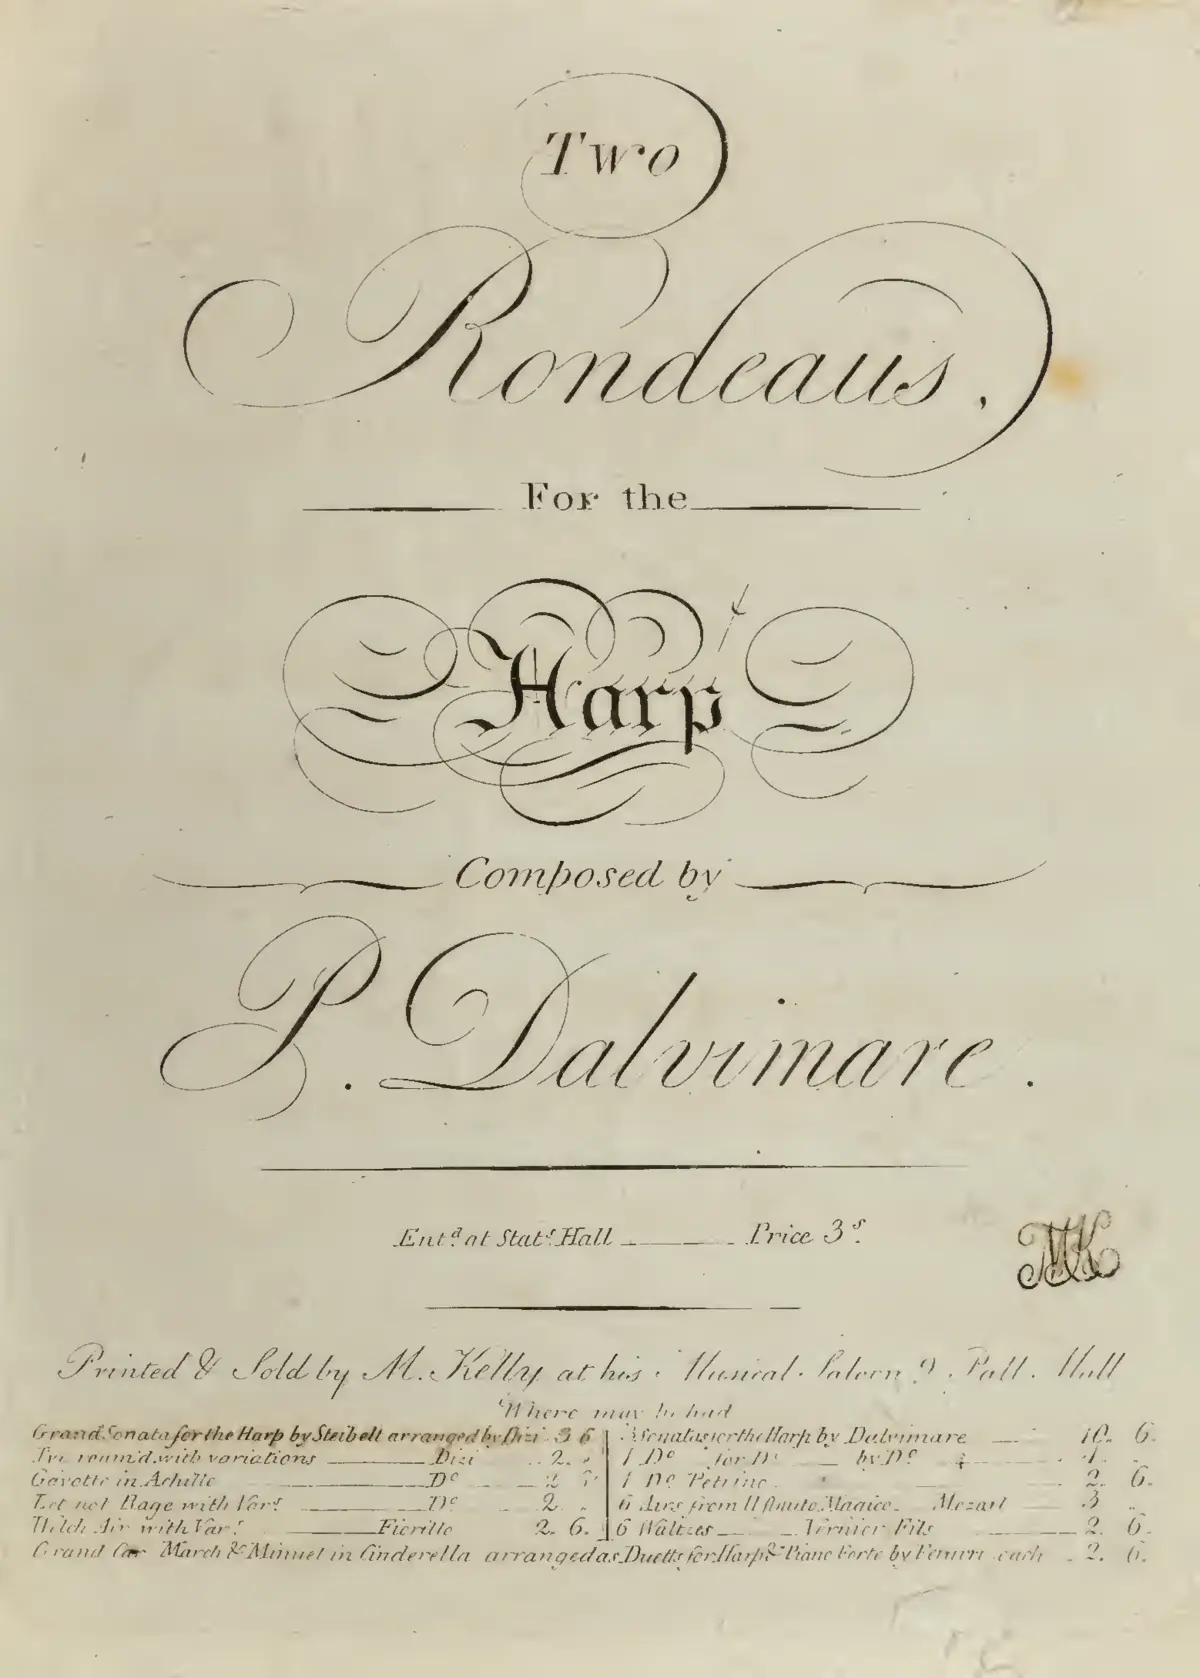 Two
Rondeaus,
For the
Harp
Composed by
P. Dalvimare.
Entd. at Stats. Hall Price 3s.
MK
Printed & Sold by M. Kelly at his Musical Saloon 9 Pall Mall
Where may be had
Grand Sonata for the Harp by Steibelt arranged by Dizi 3 6
with variations Dizi 2.
Gavotte in Achille Do 2
Let not Rage with Vars. Do 2
Welch Air with Vars. Fiorillo 2. 6.
3 Sonatas for the Harp by Dalvimare 10. 6.
1 Do for Do by Do 4.
1 Do Petrino 2. 6.
6 Airs from Il flauto Magico. Mozart 3
6 Waltzes Vernier Fils 2. 6.
Grand March & Minuet in Cinderella arranged as Duetts for Harp & Piano Forte by each 2. 6.